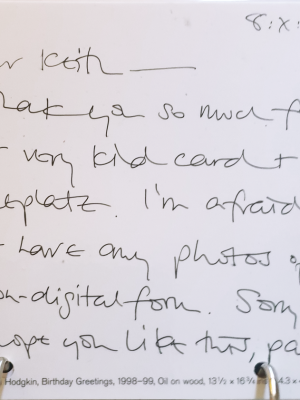 8:X:
r Keith —
hak you so much f
very kid card +
eplatz. I'm afraid
have any photos of
on-digital form. Sorry
hope you like this, pa
Hodgkin, Birthday Greetings, 1998–99, Oil on wood, 13½ × 16¾ in 4.3 x